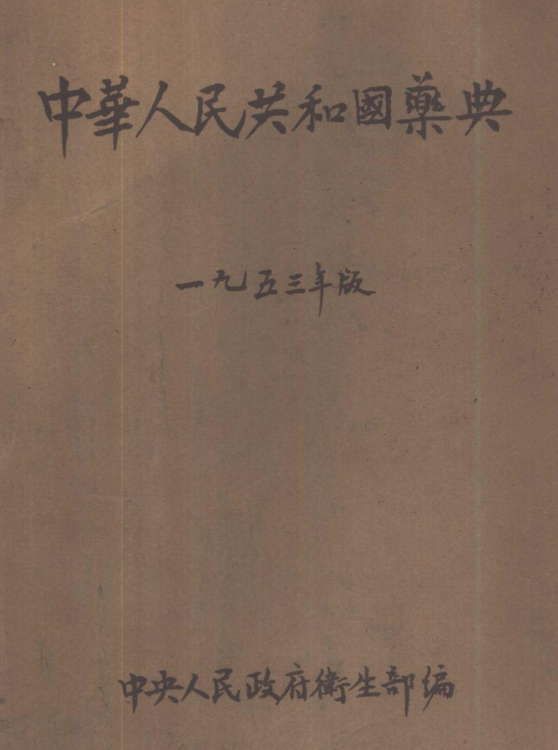 中華人民共和國藥典
一九五三年版
中央人民政府衛生部編